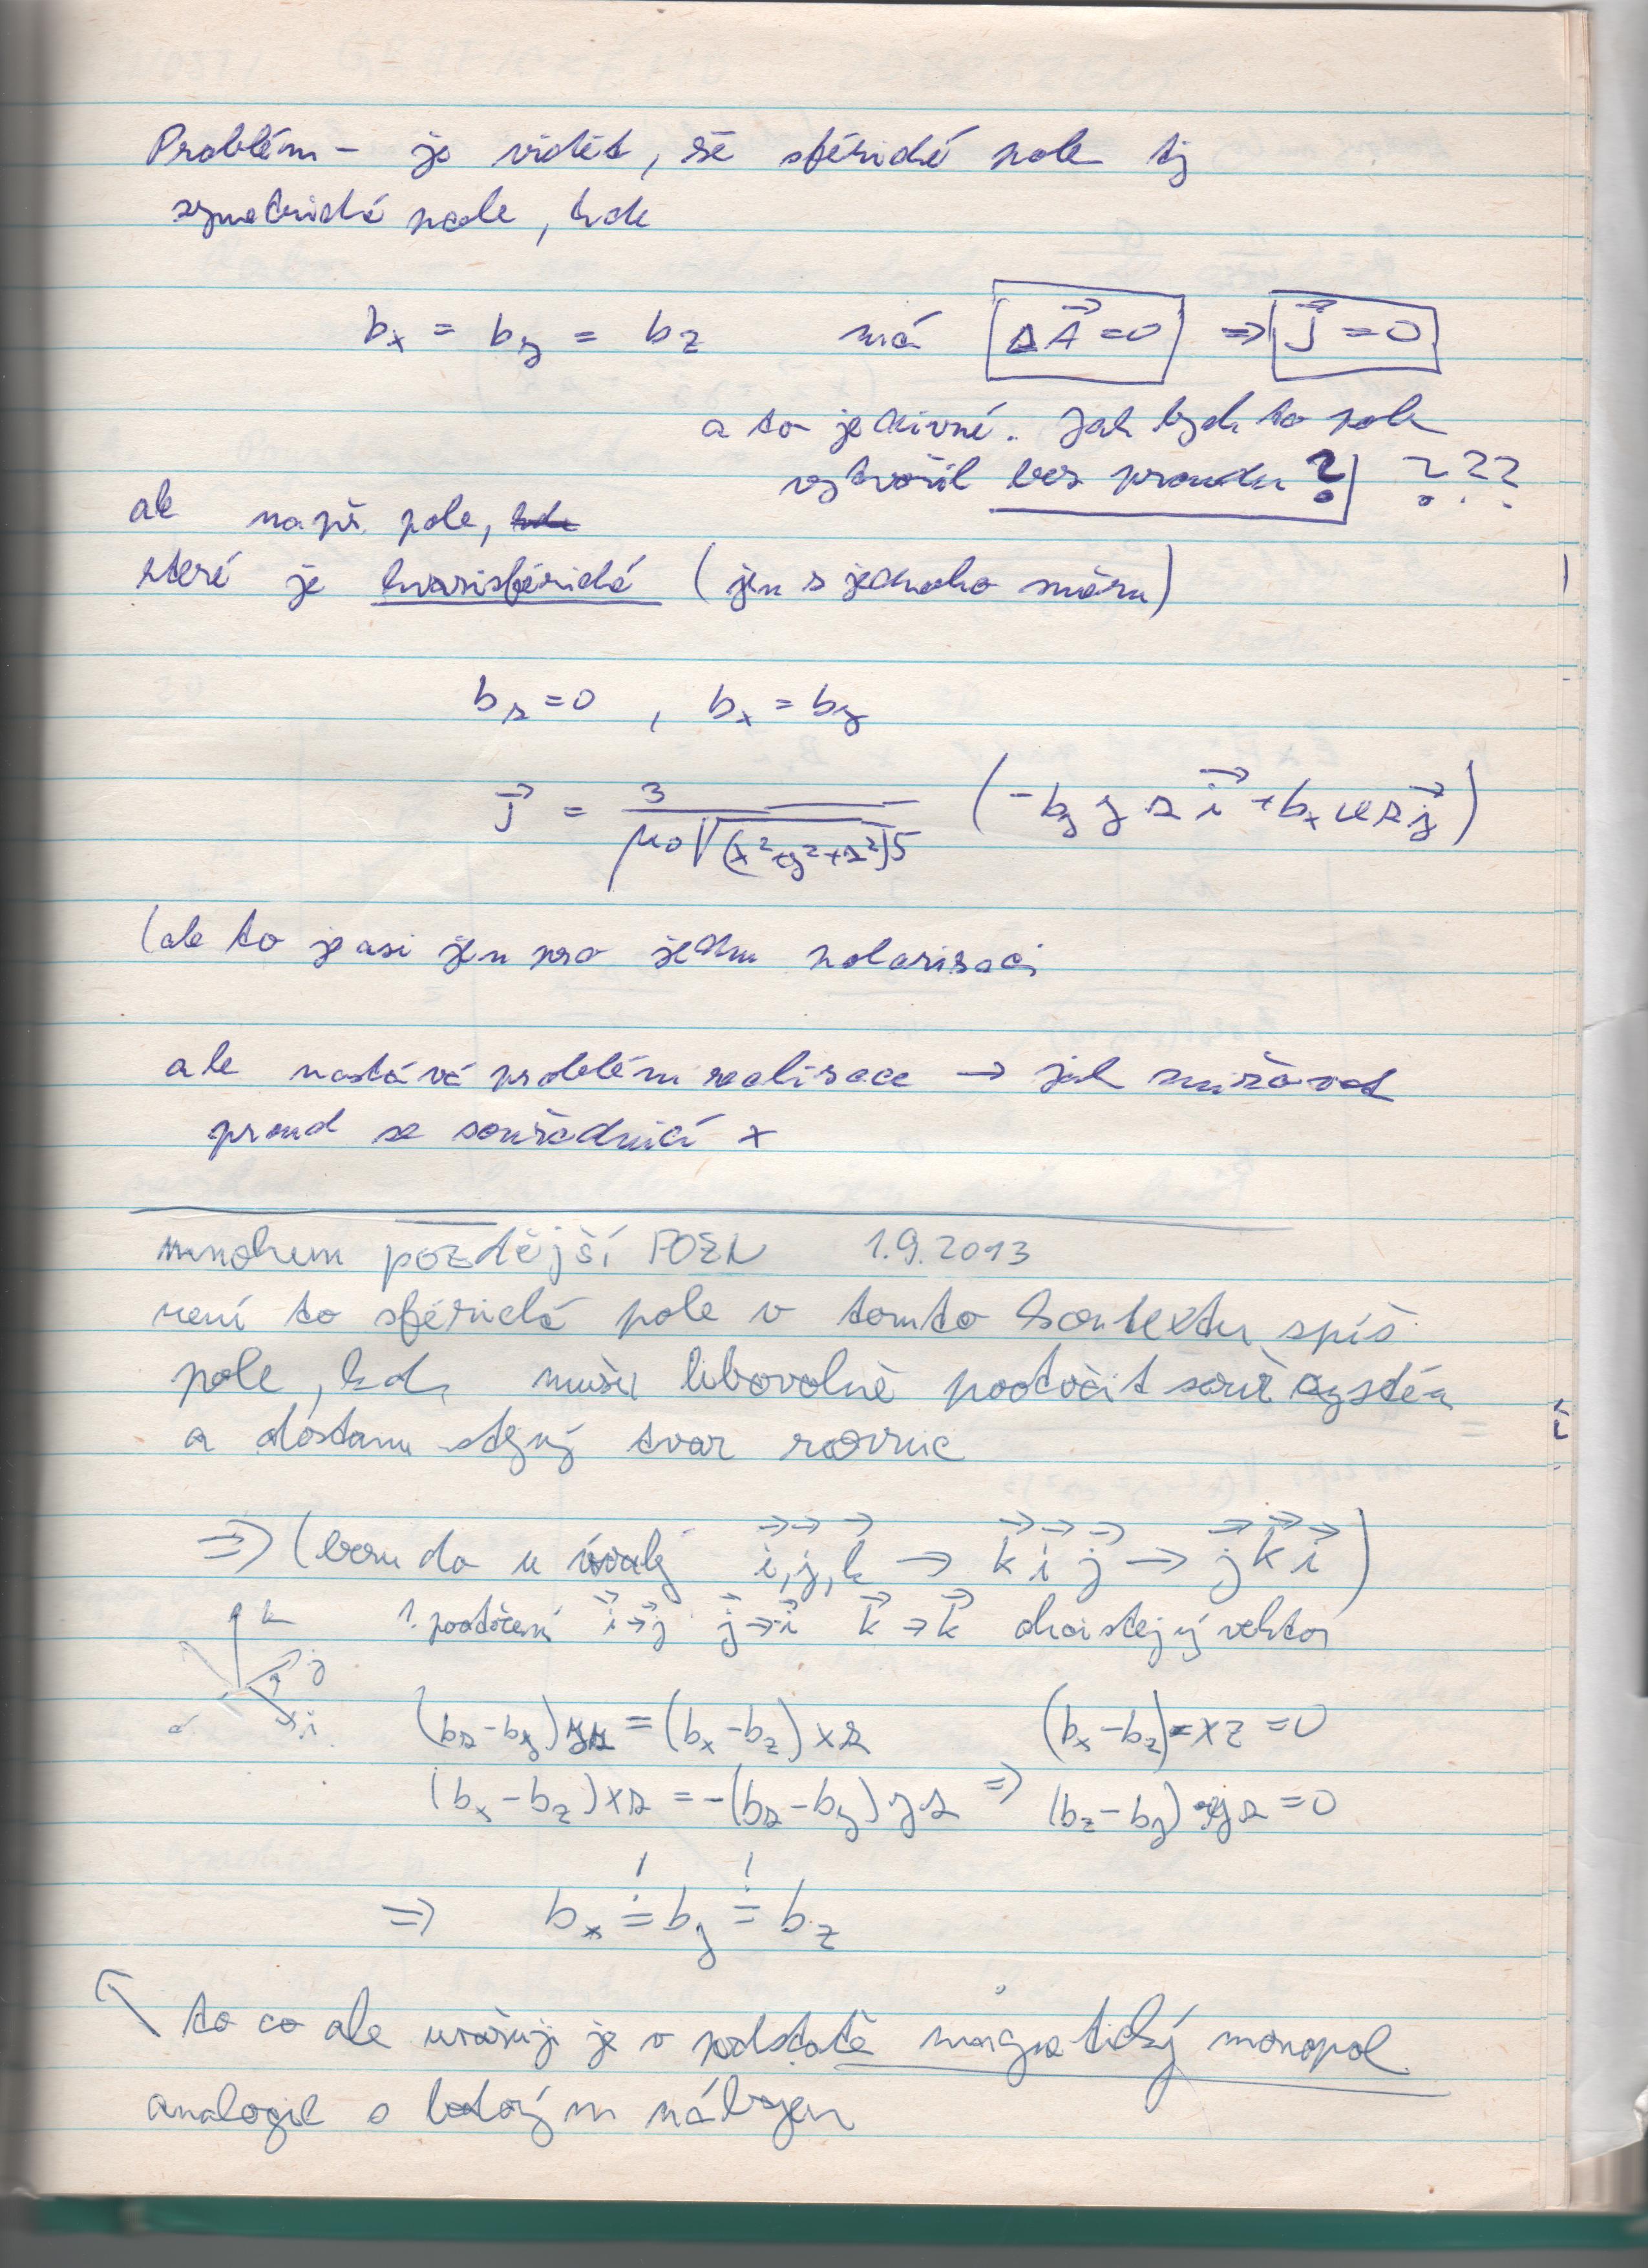 Problém – je vidět, že sférické pole tj
symetrické pole, kde
b_x = b_y = b_z má ΔA⃗ = 0 ⇒ J⃗ = 0
a to je divné. Jak bych to pole
vytvořil bez proudu? ???
ale např. pole,
které je kvazisférické (jen z jednoho směru)
b_z = 0 , b_x = b_y
J⃗ = 3 / (μ₀ √(x²+y²+z²)⁵) (-b_y y z i⃗ + b_x x z j⃗)
(ale to je asi jen pro jednu polarizaci
ale nastává problém realizace → jak snižovat
proud se souřadnicí x
mnohem pozdější POZN 1.9.2013
není to sférické pole v tomto kontextu spíš
pole, kdy musím libovolně pootočit souř systém
a dostanu stejný tvar rovnic
⇒ (beru do úvahy i⃗, j⃗, k⃗ → k⃗ i⃗ j⃗ → j⃗ k⃗ i⃗)
k
j
i
1. pootočení i⃗→j⃗ j⃗→-i⃗ k⃗→k⃗ chci stejný vektor
(b_z - b_y) yz = (b_x - b_z) xz (b_x - b_z) xz = 0
(b_x - b_z) xz = -(b_z - b_y) yz ⇒ (b_z - b_y) yz = 0
⇒ b_x =! b_y =! b_z
to co ale uvažuji je v podstatě magnetický monopol
analogie s bodovým nábojem